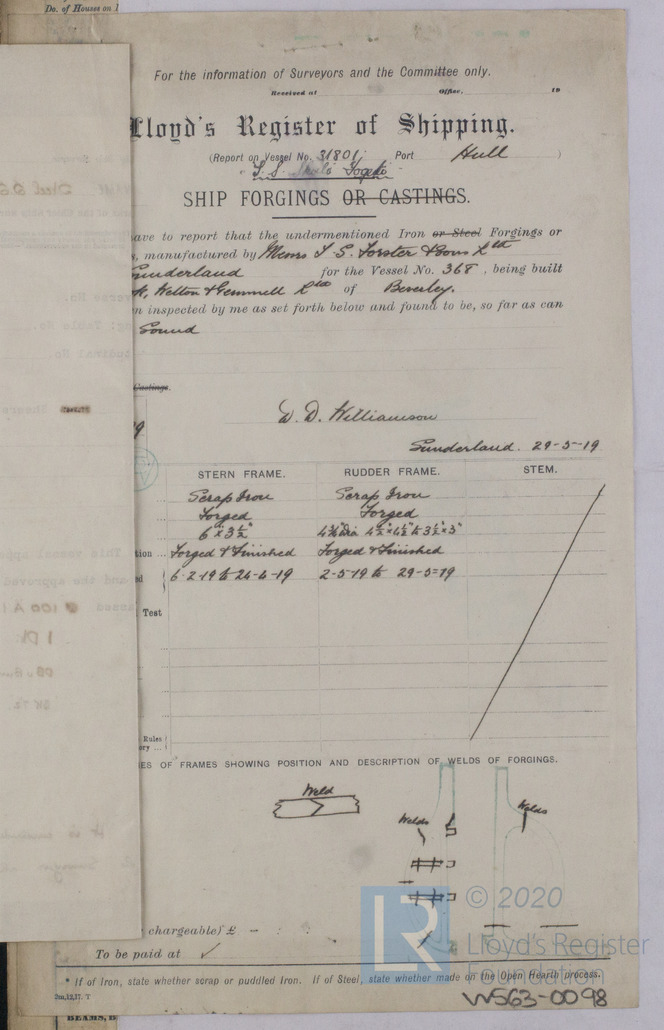 Do. of Houses on
For the information of Surveyors and the Committee only.
Received at Office, 19
Lloyd's Register of Shipping.
(Report on Vessel No. 31801, Port Hull )
SHIP FORGINGS OR CASTINGS.
ave to report that the undermentioned Iron or Steel Forgings or
s, manufactured by Messrs T. S. Forster & Sons Ltd
Sunderland for the Vessel No. 368, being built
k, Welton & Gemmell Ltd of Beverley.
n inspected by me as set forth below and found to be, so far as can
Sound
Castings.
D. D. Williamson
Sunderland. 29-5-19
STERN FRAME. RUDDER FRAME. STEM.
Scrap Iron Scrap Iron
Forged Forged
6" x 3½"
tion Forged & Finished Forged & Finished
6-2-19 to 24-4-19 2-5-19 to 29-5-19
Test
Rules
ory ...
ES OF FRAMES SHOWING POSITION AND DESCRIPTION OF WELDS OF FORGINGS.
Weld
Welds
Welds
© 2020
Lloyd's Register
Foundation
chargeable) £
To be paid at
* If of Iron, state whether scrap or puddled Iron. If of Steel, state whether made on the Open Hearth process.
2m,12,17. T
W563-0098
BEAMS, B